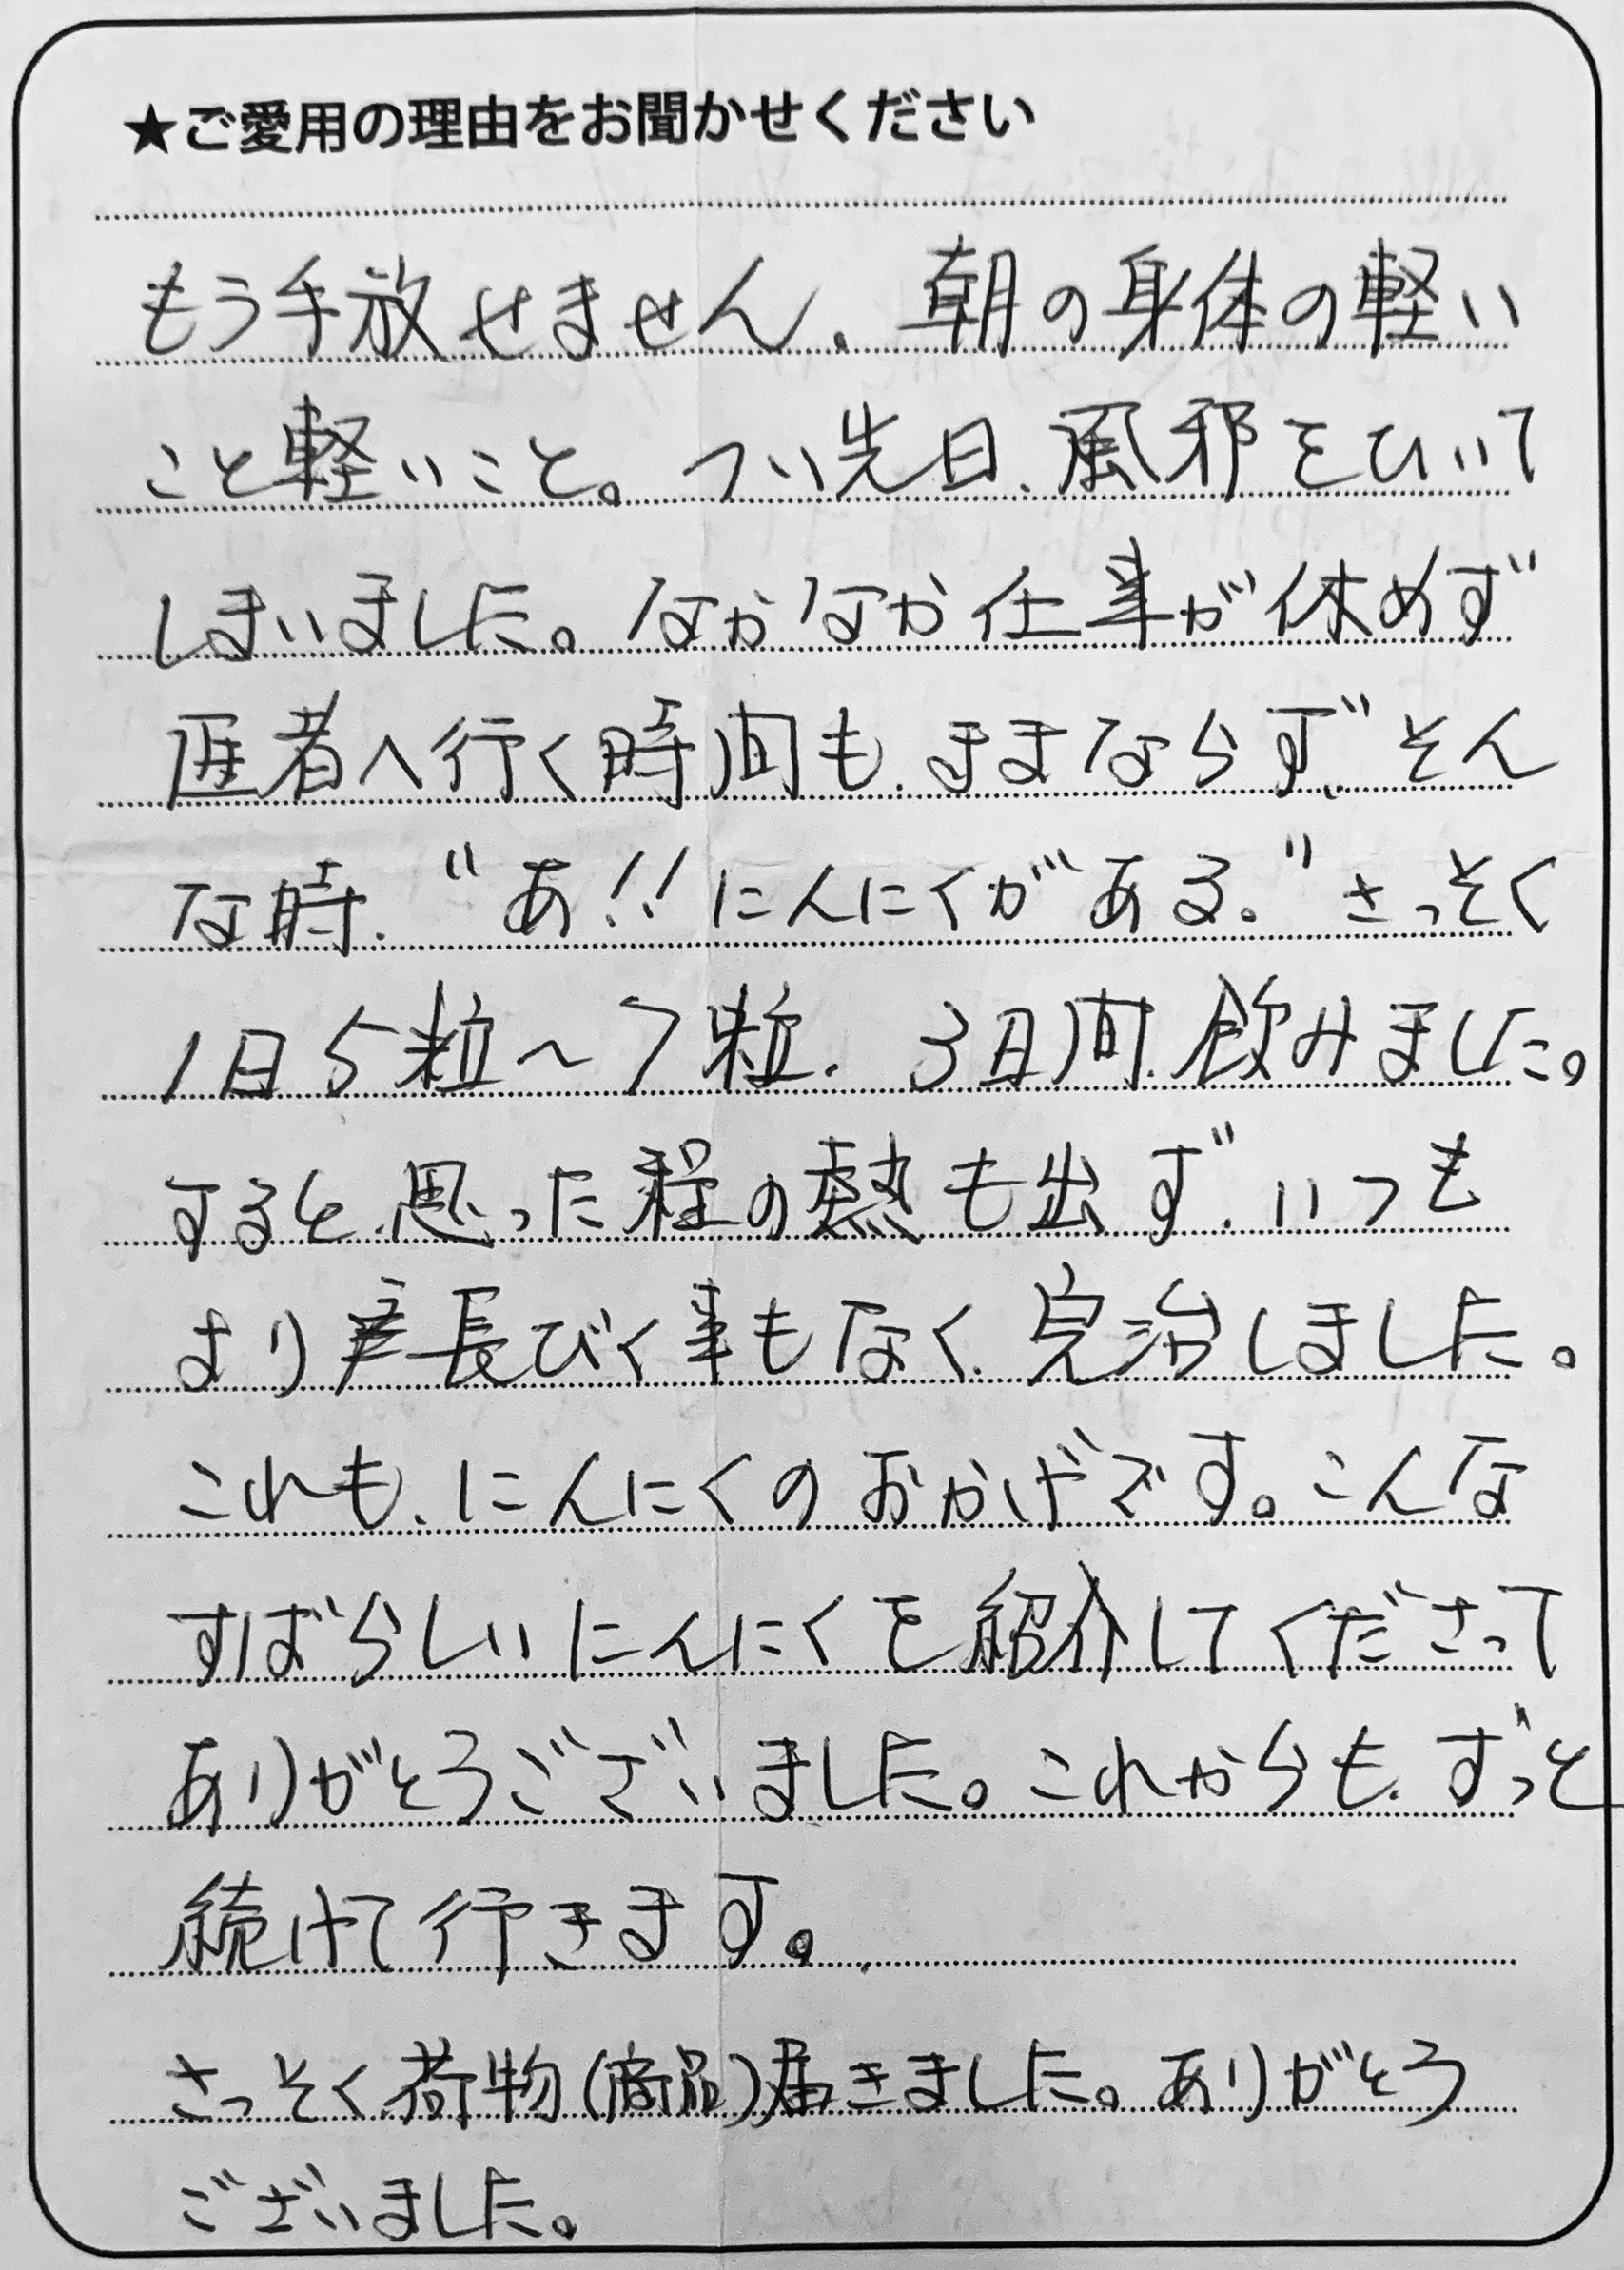 ★ご愛用の理由をお聞かせください
もう手放せません。朝の身体の軽い
こと軽いこと。つい先日、風邪をひいて
しまいました。なかなか仕事が休めず
医者へ行く時間も、ままならず、そん
な時、“あ!!にんにくがある。”さっそく
1日5粒〜7粒、3日間、飲みました。
すると、思った程の熱も出ず、いつも
より長びく事もなく、完治しました。
これも、にんにくのおかげです。こんな
すばらしいにんにくを紹介してくださって
ありがとうございました。これからも、ずっと
続けて行きます。
さっそく荷物(商品)届きました。ありがとう
ございました。